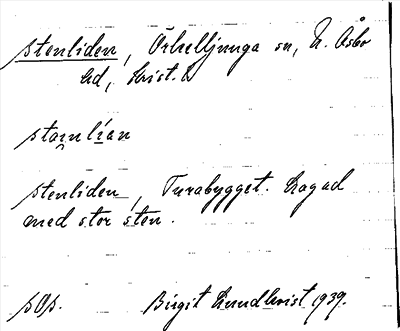 stenliden, Örkelljunga sn, N. Åsbo
hd, Krist. l
stai̯nlían
stenliden, Turabygget. Lagad
med stor sten.
sOs. Birgit Lundkvist 1939.